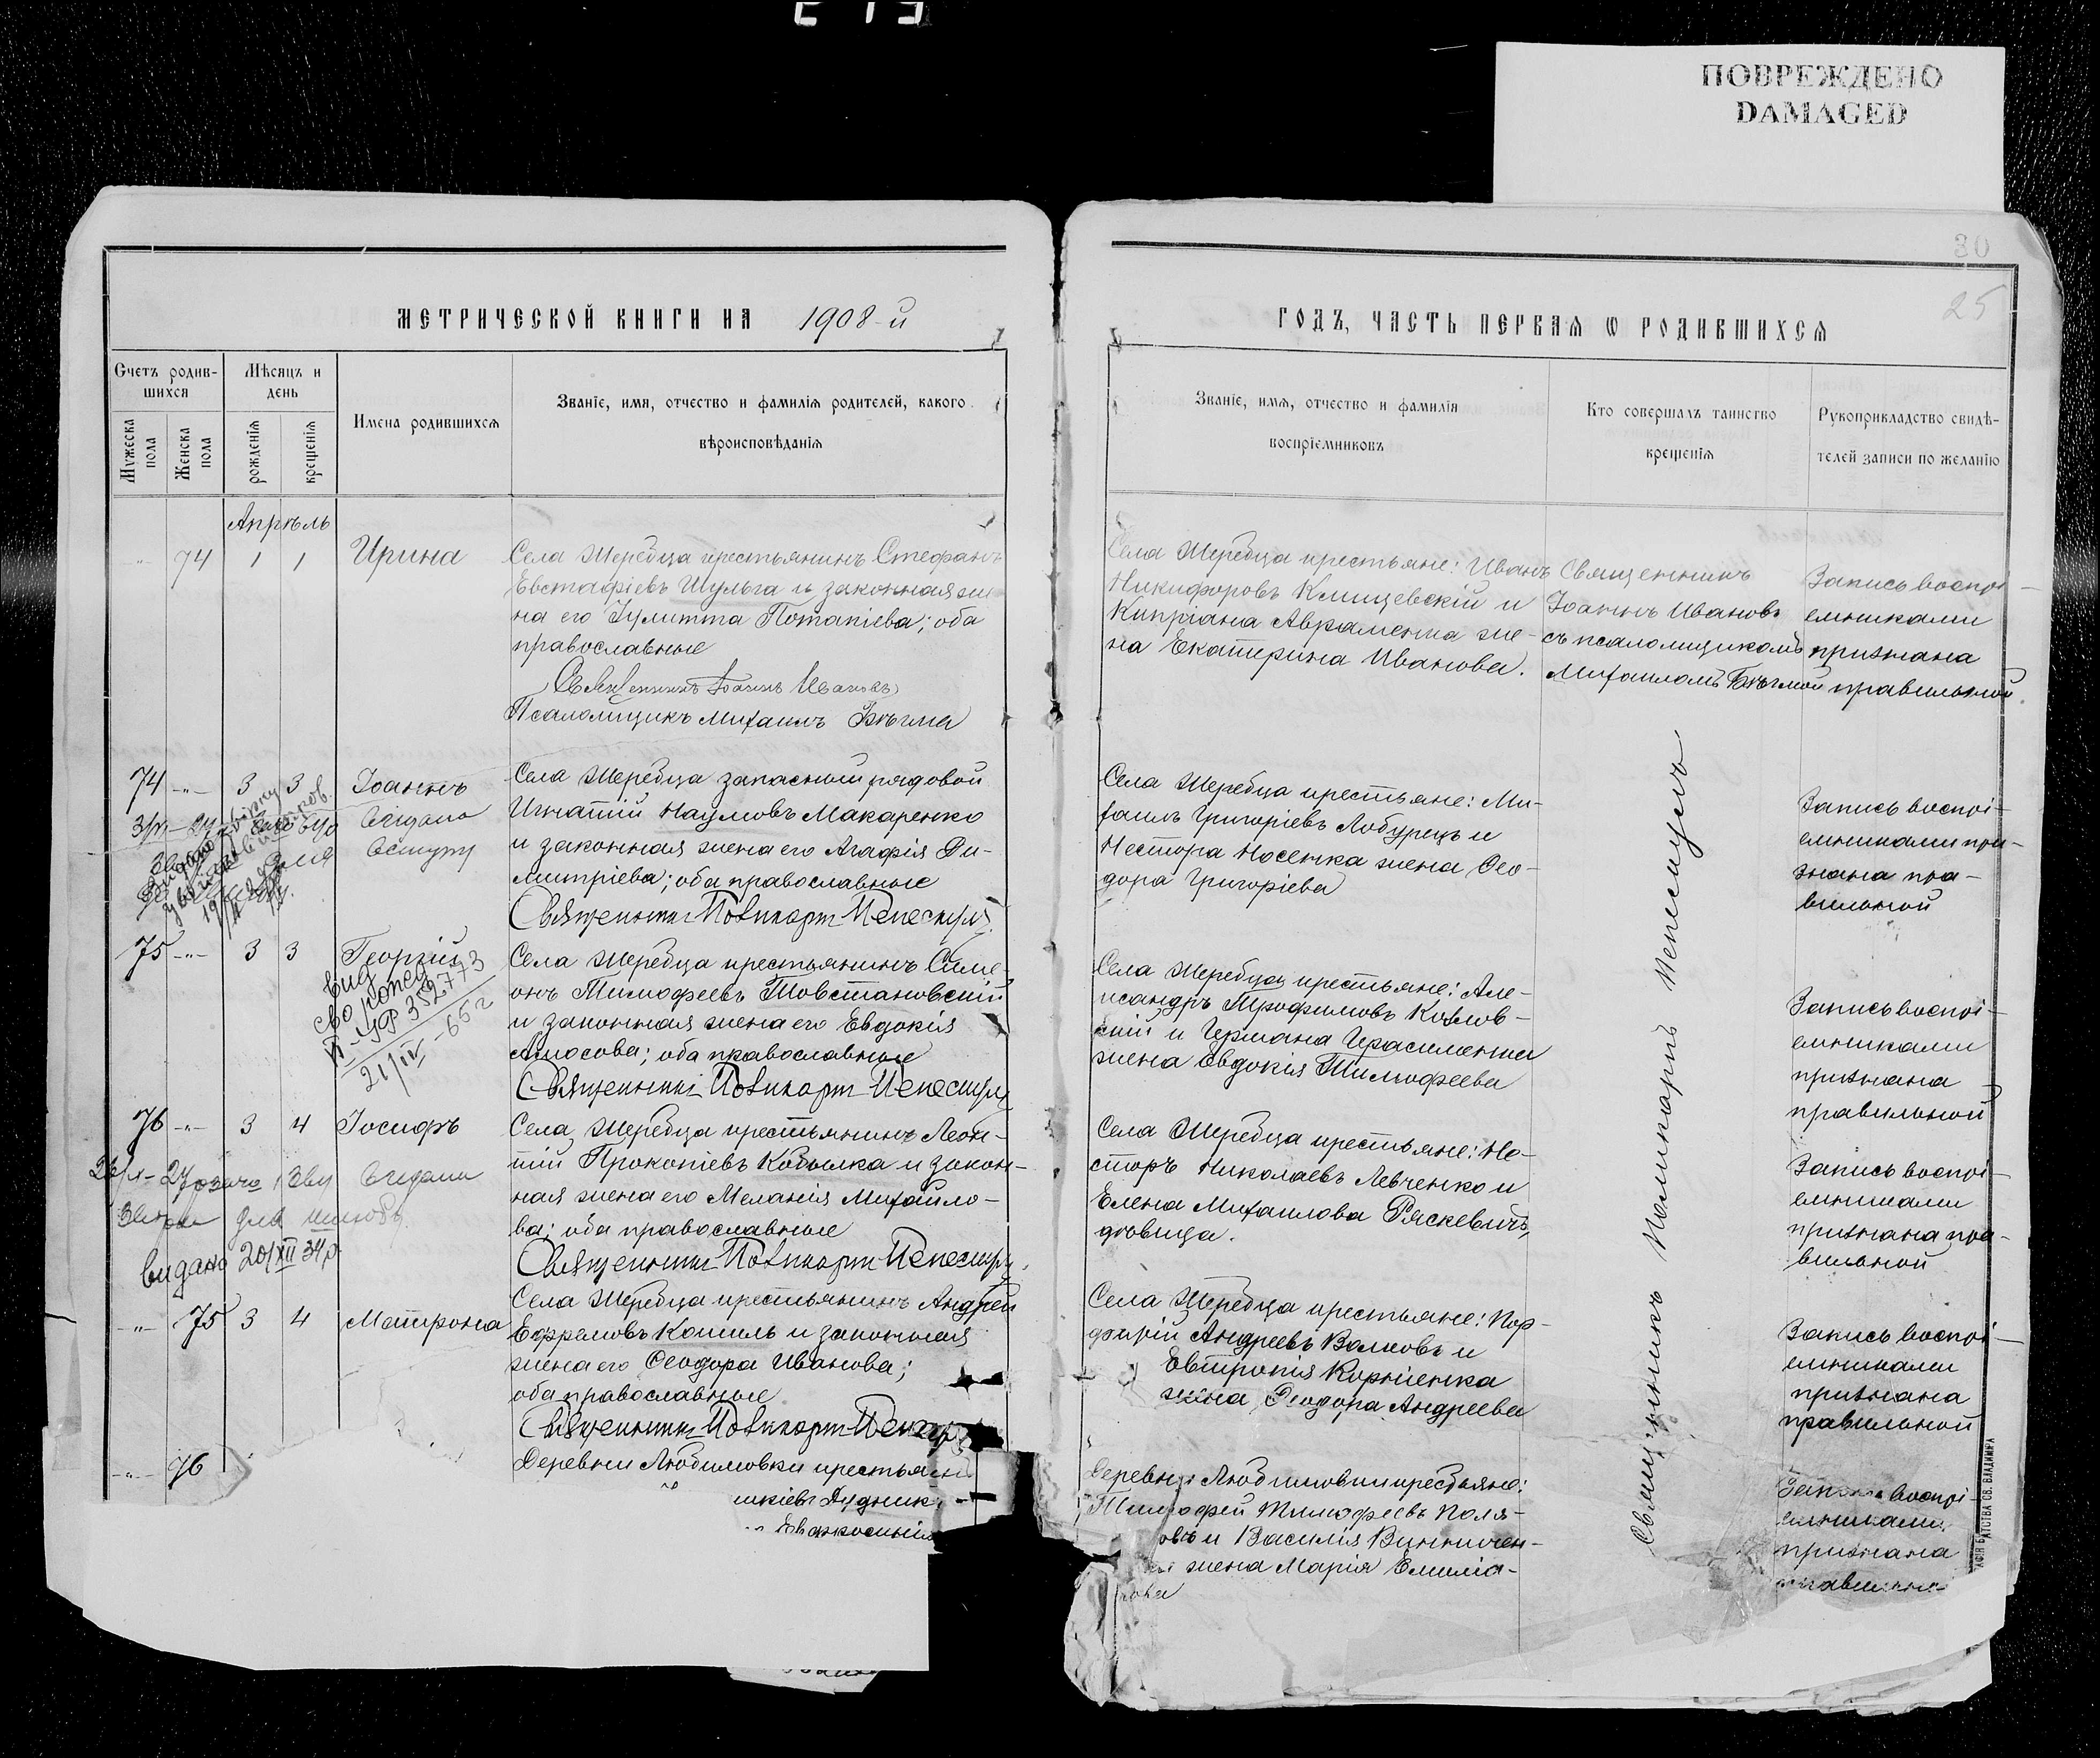 ПОВРЕЖДЕНО
DAMAGED
30
25
МЕТРИЧЕСКОЙ КНИГИ НА 1908-й
ГОДЪ, ЧАСТЬ ПЕРВАЯ Ѡ РОДИВШИХСЯ
Счетъ родив-
шихся
Мужеска
пола
Женска
пола
Мѣсяцъ и
день
рожденія
крещенія
Имена родившихся
Званіе, имя, отчество и фамилія родителей, какого
вѣроисповѣданія
Званіе, имя, отчество и фамилія
воспріемниковъ
Кто совершалъ таинство
крещенія
Рукоприкладство свидѣ-
телей записи по желанію
Апрѣль
74 1 1 Ирина
Села Жеребца крестьянинъ Стефанъ
Евстафіевъ Шульга и законная же-
на его Іулитта Потапіева; оба
православные
Священникъ Іоаннъ Ивановъ
Псаломщикъ Михаилъ Бѣгма
Села Жеребца крестьяне: Иванъ
Никифоровъ Клищевскій и
Кипріана Авраменка же-
на Екатерина Иванова.
Священникъ
Іоаннъ Ивановъ
съ псаломщикомъ
Михаиломъ Бѣгмой
Запись воспрі-
емниками
признана
правильной.
74 -"- 3 3 Іоаннъ
Села Жеребца запасный рядовой
Игнатій Наумовъ Макаренко
и законная жена его Агафія Ди-
митріева; оба православные
Священникъ Поликарпъ Пепескулъ
Села Жеребца крестьяне: Ми-
хаилъ Григоріевъ Лобурецъ и
Нестора Носенка жена Ѳео-
дора Григоріева
Запись воспрі-
емниками при-
знана пра-
вильной
75 -"- 3 3 Георгій
21/IV-65г
Села Жеребца крестьянинъ Симе-
онъ Тимофеевъ Товстановскій
и законная жена его Евдокія
Амосова; оба православные
Священникъ Поликарпъ Пепескулъ
Села Жеребца крестьяне: Але-
ксандръ Трофимовъ Козлов-
скій и Германа Герасименка
жена Евдокія Тимофеева
Запись воспрі-
емниками
признана
правильной
76 -"- 3 4 Іосифъ
видано 20/XII 34р
Села Жеребца крестьянинъ Леон-
тій Прокопіевъ Кобылка и закон-
ная жена его Меланія Михайло-
ва; оба православные
Священникъ Поликарпъ Пепескулъ
Села Жеребца крестьяне: Не-
сторъ Николаевъ Левченко и
Елена Михаилова Ряскевичъ,
дѣвица.
Запись воспрі-
емниками
признана пра-
вильной
-"- 75 3 4 Матрона
Села Жеребца крестьянинъ Андрей
Ефремовъ Кошиль и законная
жена его Ѳеодора Иванова;
оба православные
Священникъ Поликарпъ
Села Жеребца крестьяне: Пор-
фирій Андреевъ Волковъ и
Евтропія Корніенка
жена Ѳеодора Андреева
Запись воспрі-
емниками
признана
правильной
-"- 76
Деревни Любимовки крестьянин
Дудник
Деревни Любимовки крестьяне:
Тимофей Тимофеевъ Поля-
овъ и Василія Винничен-
жена Марія Емилiа-
нова
Запись воспрі-
емниками
признана
Священникъ Поликарпъ Пепескулъ
АТСТВА СВ. ВЛАДИМІРА